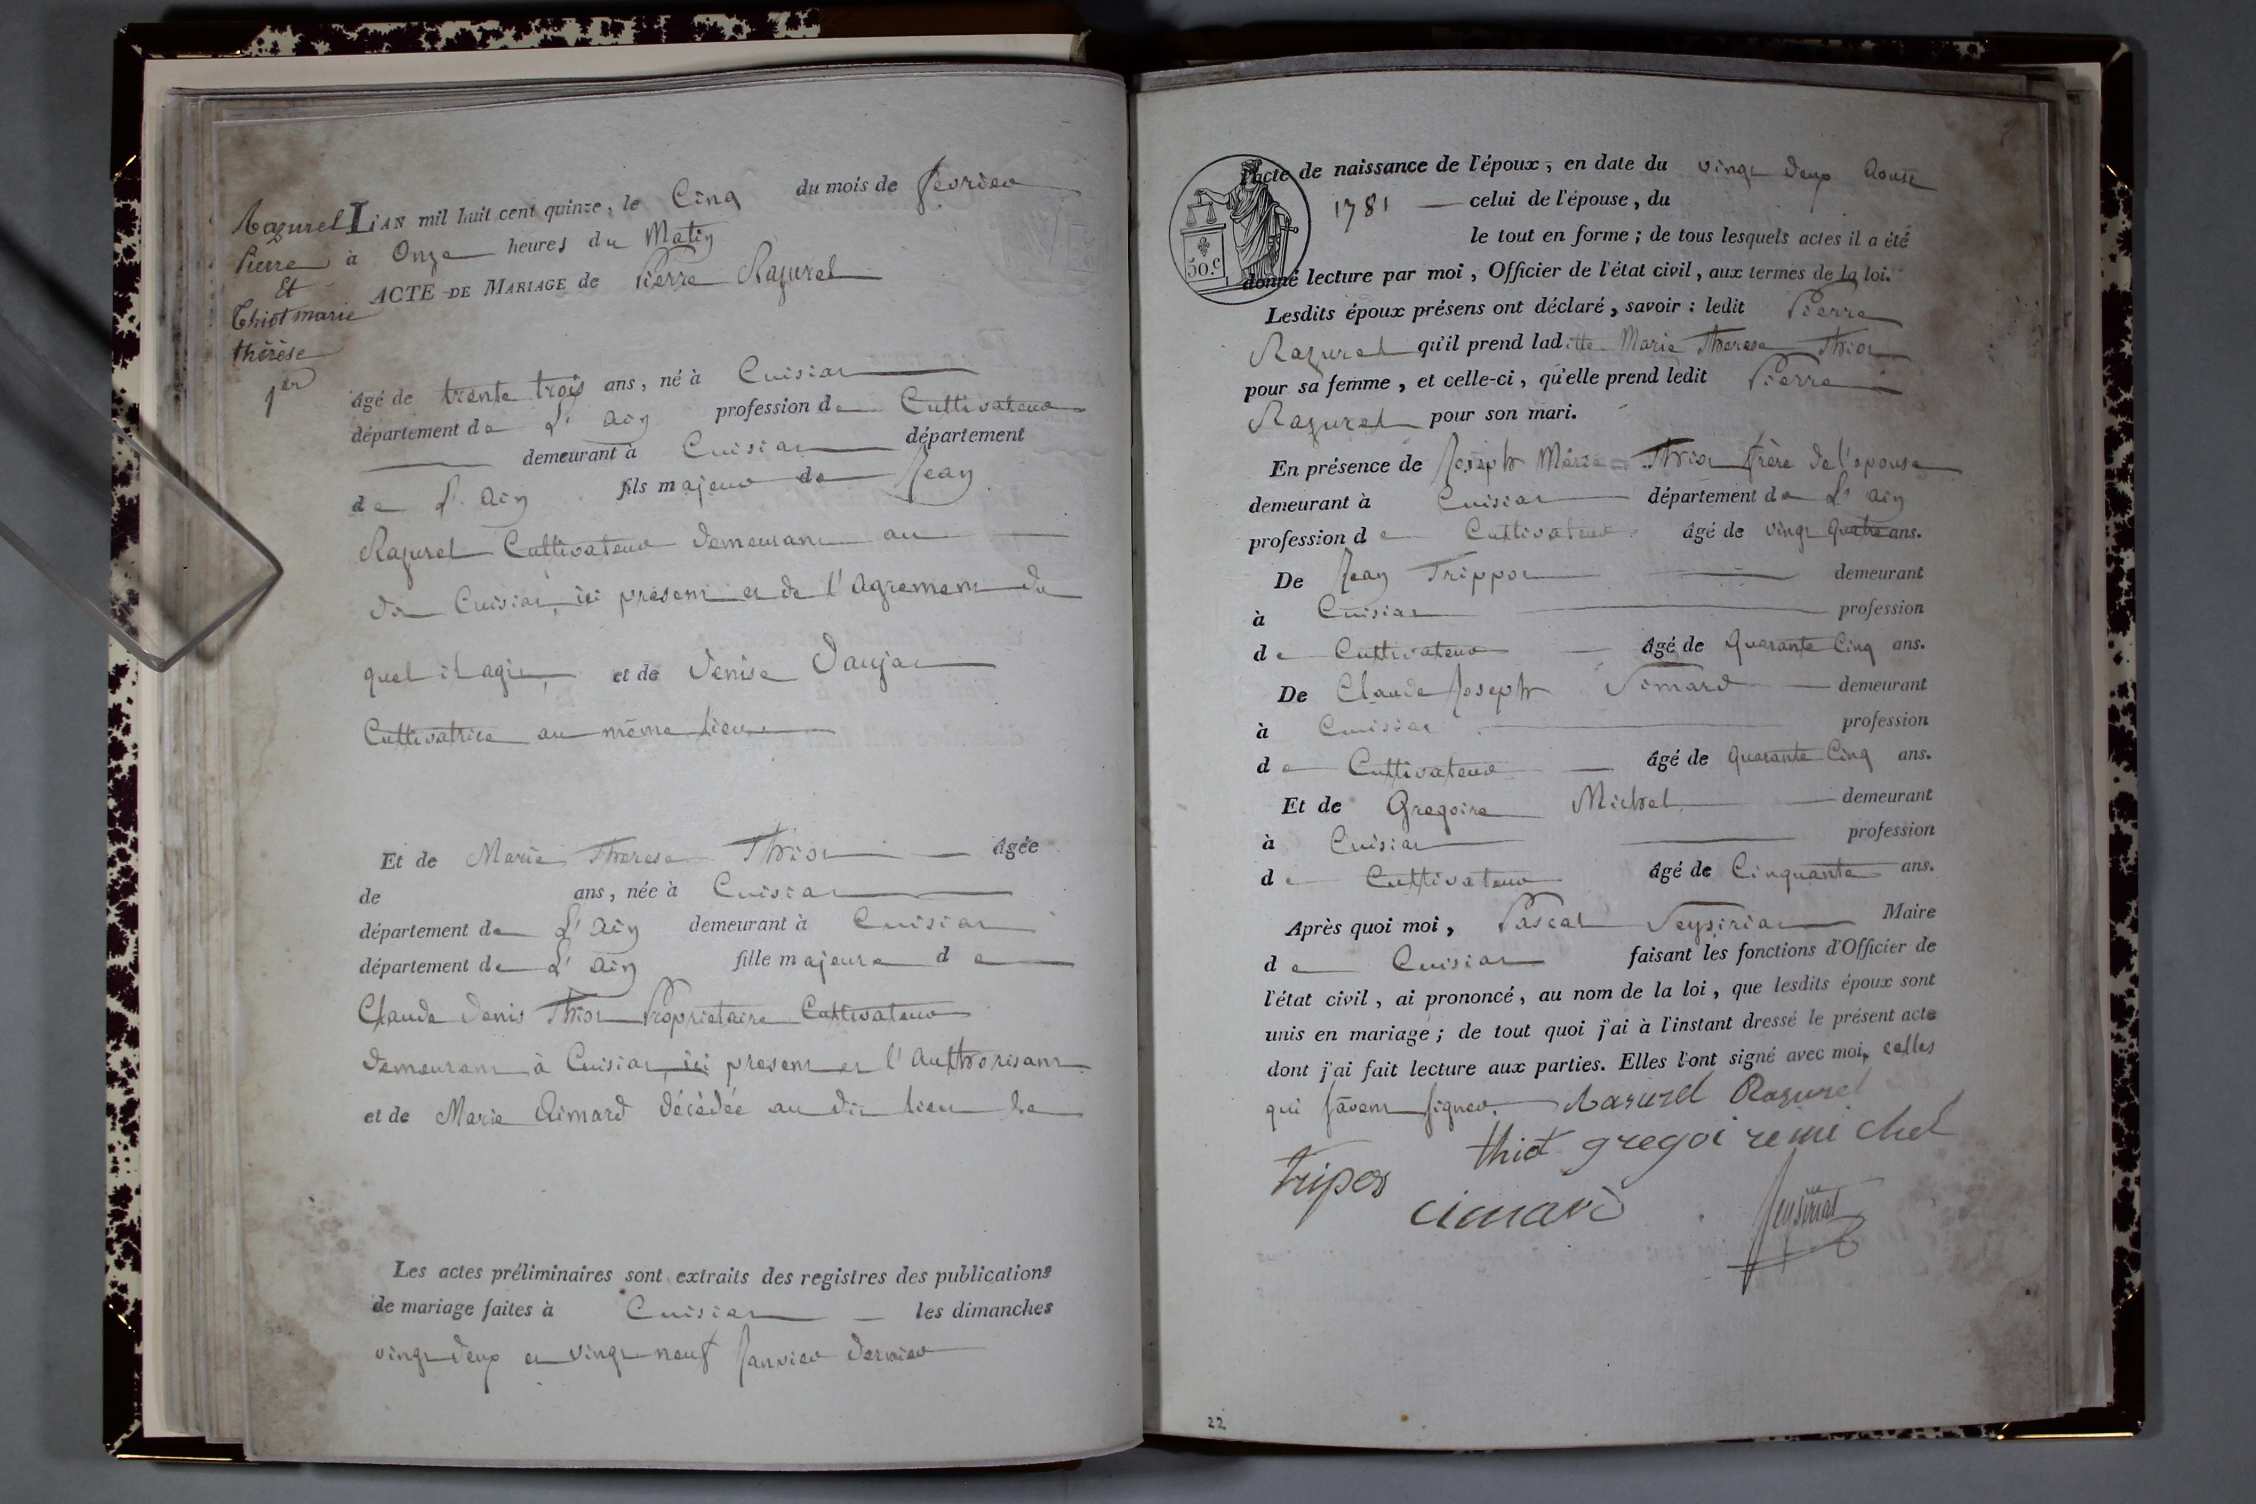 Razurel
Pierre
Et
Thiot marie
thérèse
1er
LIAN mil huit cent quinze, le Cinq du mois de fevrier
à Onze heures du Matin
ACTE DE MARIAGE de Pierre Razurel
âgé de trente trois ans, né à Cuisiat
département de L'ain profession de Cultivateur
demeurant à Cuisiat département
de L'ain fils majeur de Jean
Razurel Cultivateur demeurant au
dit Cuisiat, ici present et de l'agrement du
quel il agit, et de Denise Daujat
Cultivatrice au même lieu
Et de Marie Therese Thiot âgée
de ans, née à Cuisiat
département de L'ain demeurant à Cuisiat
département de L'ain fille majeure de
Claude Denis Thiot Proprietaire Cultivateur
demeurant à Cuisiat, ici present et l'authorisant
et de Marie Aimard décédée au dit lieu le
Les actes préliminaires sont extraits des registres des publications
de mariage faites à Cuisiat les dimanches
vingt deux et vingt neuf Janvier dernier
l'acte de naissance de l'époux, en date du vingt deux Aoust
1781 celui de l'épouse, du
le tout en forme ; de tous lesquels actes il a été
50.c
donné lecture par moi, Officier de l'état civil, aux termes de la loi.
Lesdits époux présens ont déclaré, savoir : ledit Pierre
Razurel qu'il prend laditte Marie Therese Thiot
pour sa femme, et celle-ci, qu'elle prend ledit Pierre
Razurel pour son mari.
En présence de Joseph Marie Thiot frère de l'epouse
demeurant à Cuisiat département de L'ain
profession de Cultivateur âgé de vingt quatre ans.
De Jean Trippoz demeurant
à Cuisiat profession
de Cultivateur âgé de quarante Cinq ans.
De Claude Joseph Simard demeurant
à Cuisiat profession
de Cultivateur âgé de quarante Cinq ans.
Et de Gregoire Michel demeurant
à Cuisiat profession
de Cultivateur âgé de Cinquante ans.
Après quoi moi, Pascal Veysiriat Maire
de Cuisiat faisant les fonctions d'Officier de
l'état civil, ai prononcé, au nom de la loi, que lesdits époux sont
unis en mariage ; de tout quoi j'ai à l'instant dressé le présent acte
dont j'ai fait lecture aux parties. Elles l'ont signé avec moi, celles
qui savent signer. Razurel Razurel
thiot gregoire michel
tripos
cimard
Veysiriat
22